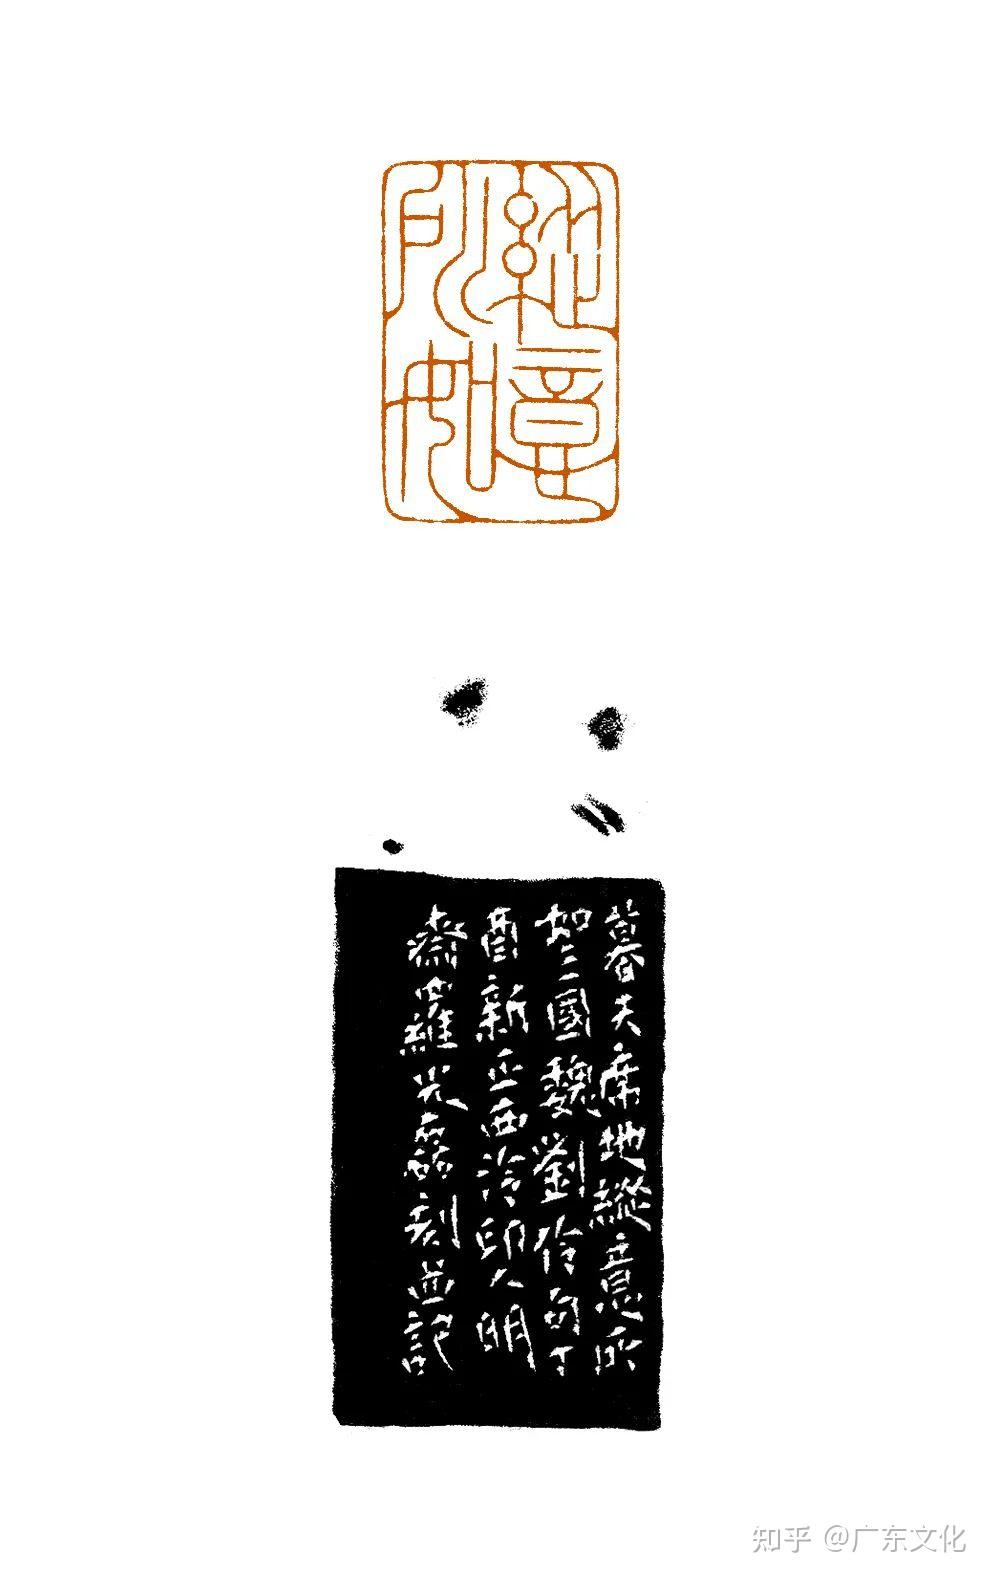 縱意
所如
幕天席地縱意所
如三國魏劉伶句丁
酉新正西泠印人明
齋羅光磊刻並記
知乎 @广东文化